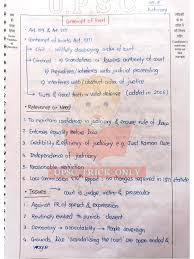 GS-II
Judiciary
Contempt of Court
Art. 129 & Art 215
Contempt of Courts Act, 1971
Civil - wilfully disobeying order of court
Criminal → Scandalises or lowers authority of court
→ Prejudices / interferes with judicial proceeding
→ interferes with / obstructs admin. of justice
truth & Good faith were valid defence (added in 2006)
Relevance or Need
1. To maintain confidence in judiciary & ensure rule of law
2. Ensures equality before law
3. Credibility & efficiency of judiciary e.g. Just. Karnan Case
4. Independence of judiciary
5. Reasonable restriction
UPSC TRICK ONLY
Issues
1. court is judge, victim & prosecutor
2. Against FR of speech & expression
3. Routinely evoked to punish dissent
4. Democracy → accountability → people sovereign
5. Grounds like 'scandalising the court' are open ended &